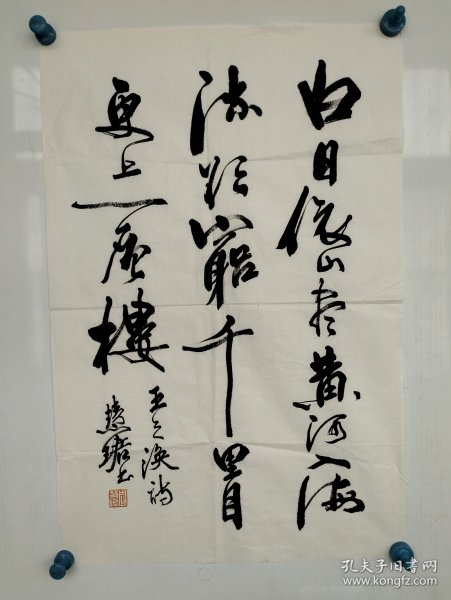 白日依山尽黄河入海
流欲窮千里目
更上一层樓
王之涣詩
慧珺书
孔夫子旧书网
www.kongfz.com